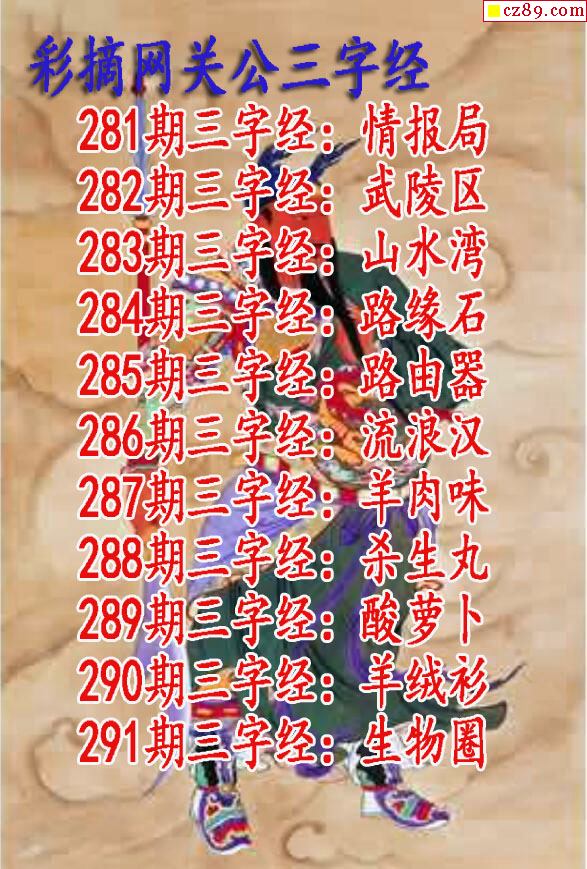 cz89.com
彩摘网关公三字经
281期三字经：情报局
282期三字经：武陵区
283期三字经：山水湾
284期三字经：路缘石
285期三字经：路由器
286期三字经：流浪汉
287期三字经：羊肉味
288期三字经：杀生丸
289期三字经：酸萝卜
290期三字经：羊绒衫
291期三字经：生物圈